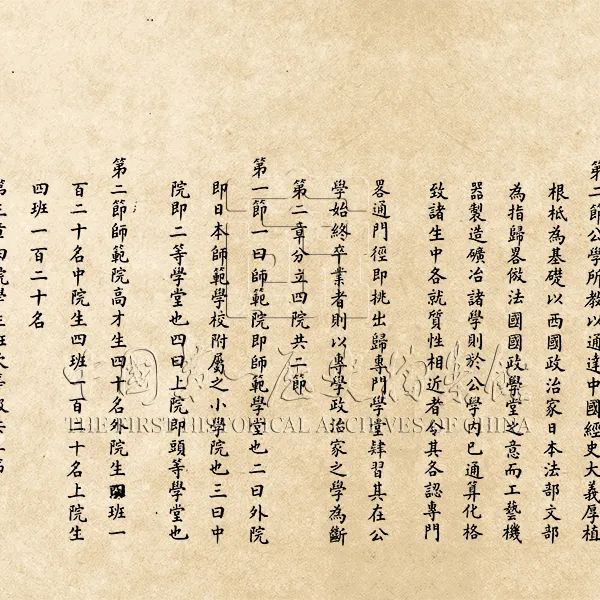 第二節公學所教以通達中國經史大義厚植
根柢為基礎以西國政治家日本法部文部
為指歸畧倣法國國政學堂之意而工藝機
器製造礦冶諸學則於公學內已通算化格
致諸生中各就質性相近者令其各認專門
畧通門徑即挑出歸專門學堂肆習其在公
學始終卒業者則以專學政治家之學為斷
第二章分立四院共二節
第一節一曰師範院即師範學堂也二曰外院
即日本師範學校附屬之小學院也三曰中
院即二等學堂也四曰上院即頭等學堂也
第二節師範院高才生四十名外院生四班一
百二十名中院生四班一百二十名上院生
四班一百二十名
第三章四院學生班次等級共
中國第一歷史檔案館
THE FIRST HISTORICAL ARCHIVES OF CHINA